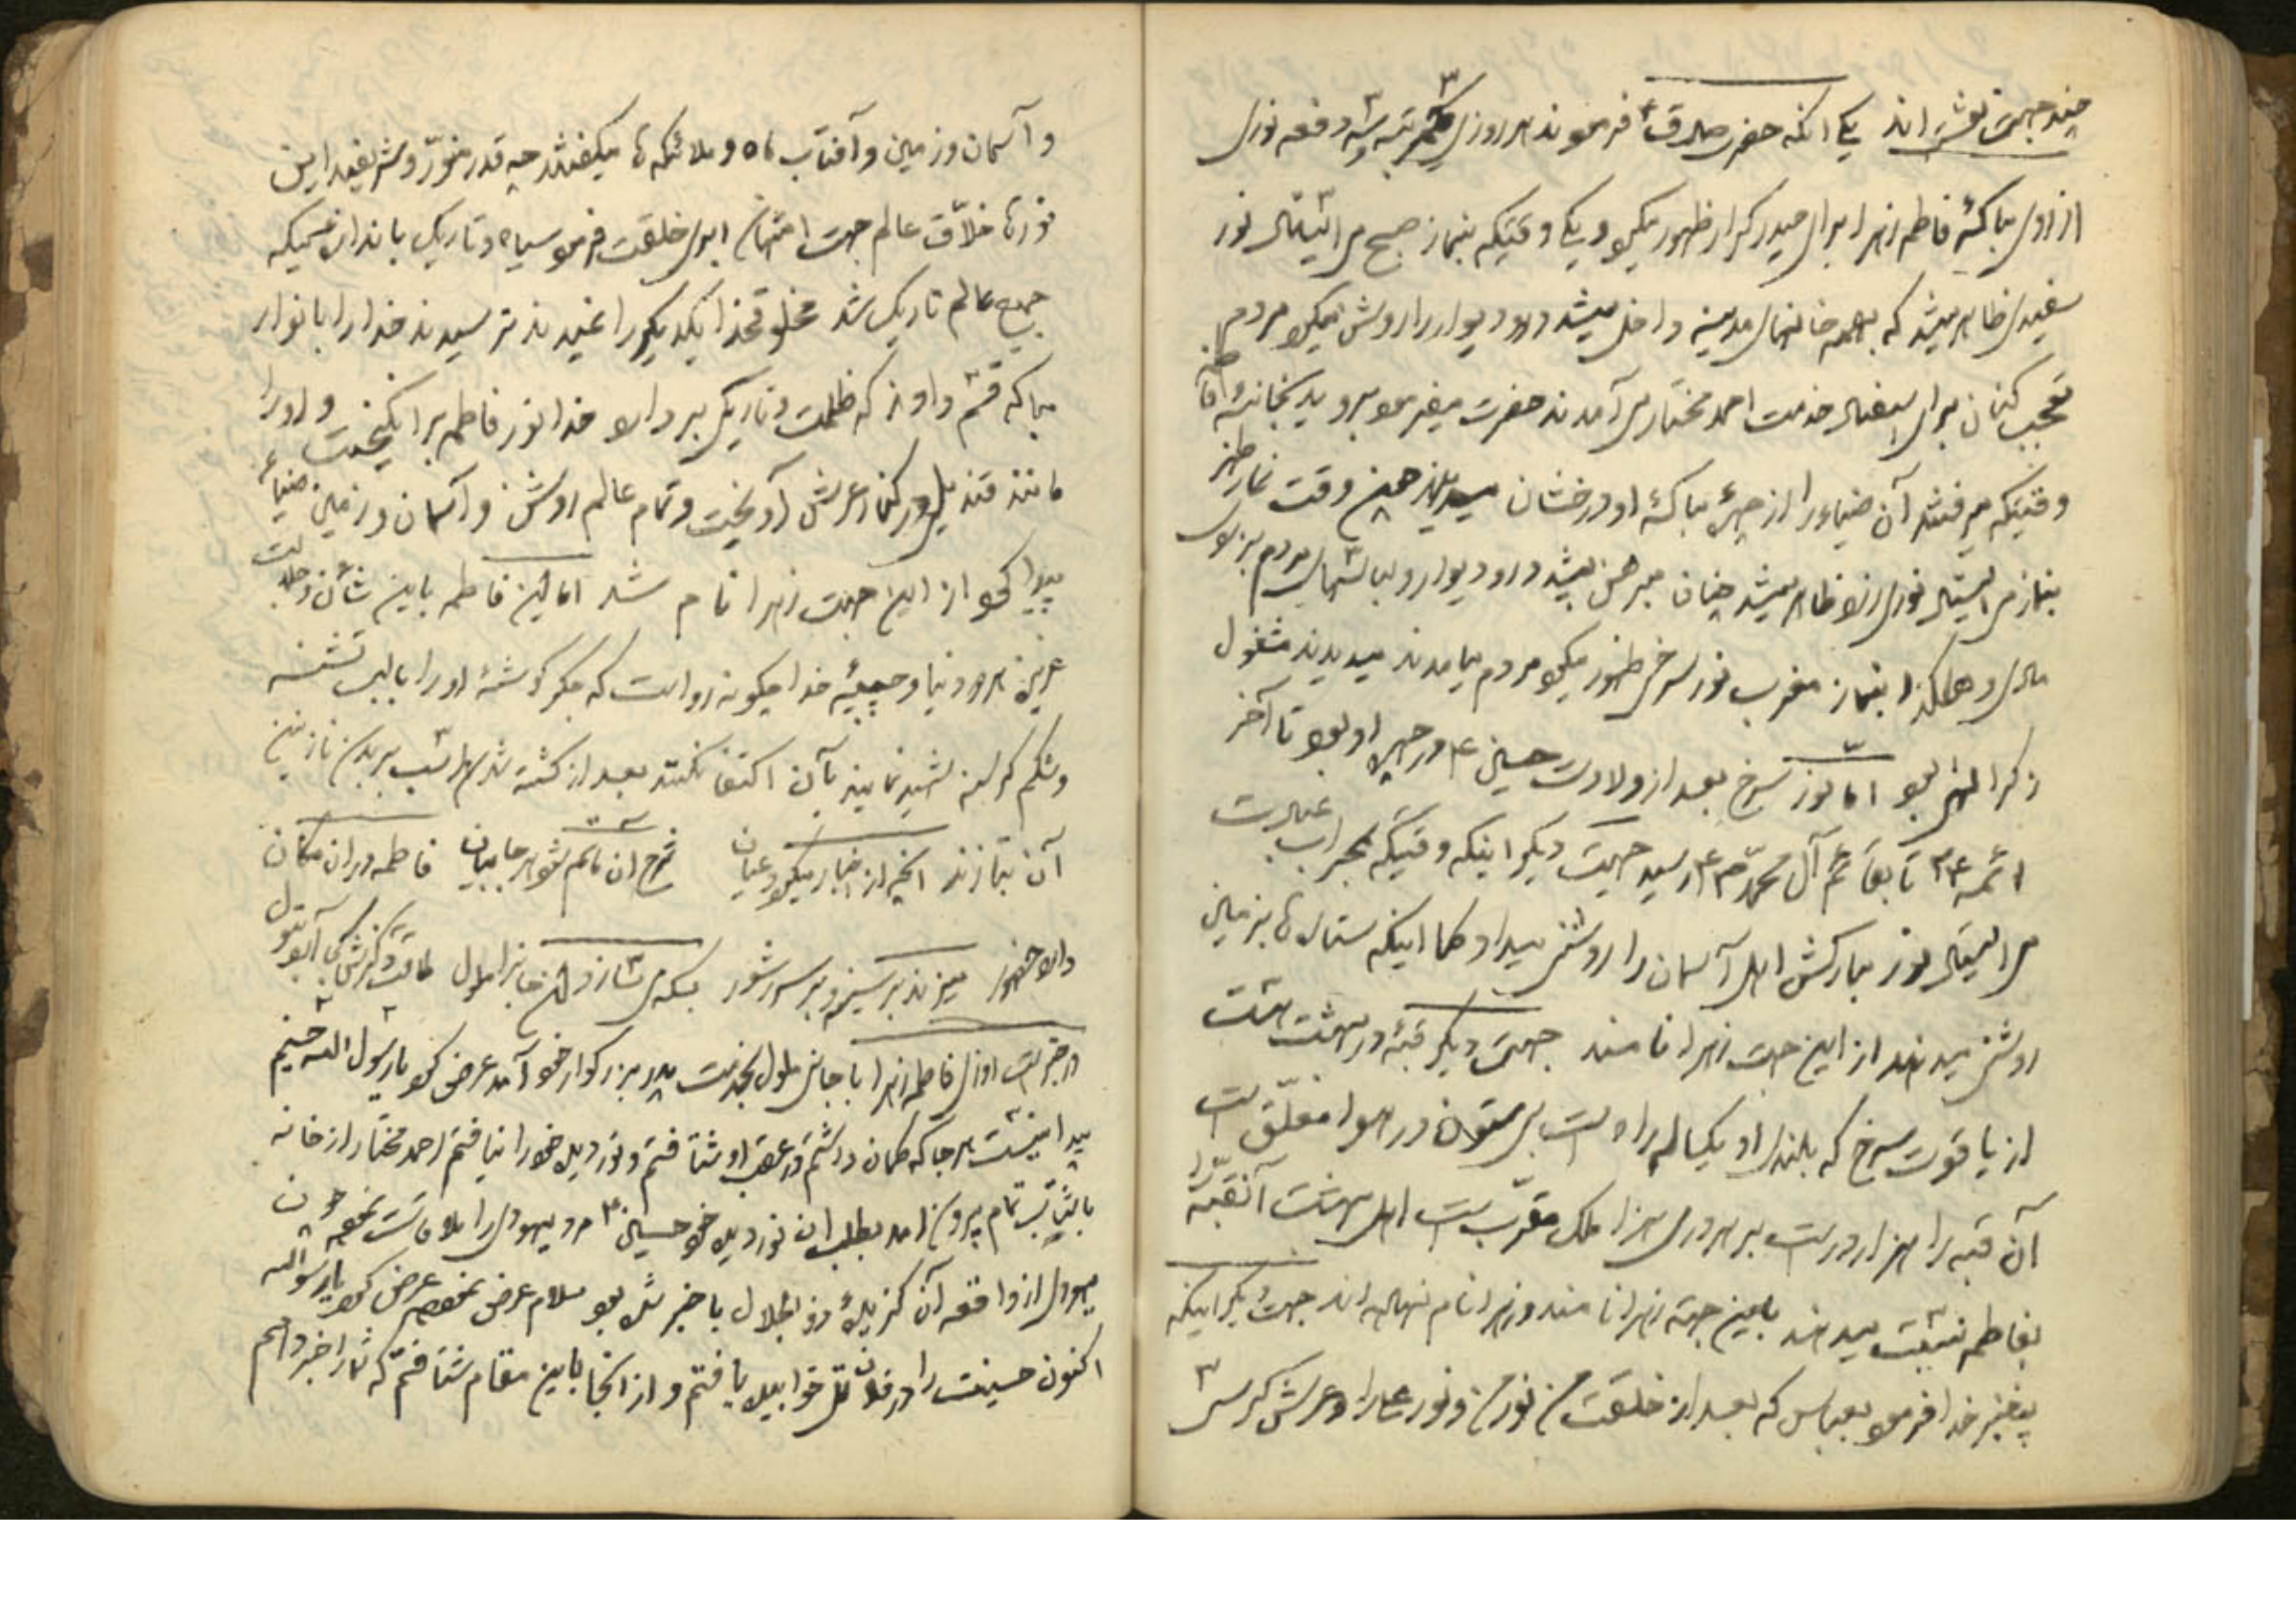 چند جهت نوشته‌اند یکی آنکه حضرت صادق فرمودند هر روزی سه دفعه نوری
از روی مبارک فاطمه زهرا برای حیدر کرار ظهور میکرد یکی وقتیکه بنماز صبح می ایستاد نور
سفیدی ظاهر میشد که بهمه خانهای مدینه داخل میشد در و دیوار را روشن میکرد مردم
تعجب کنان برای استفسار خدمت احمد مختار می‌آمدند حضرت میفرمود بروید بخانه
وقتیکه میرفتند آن ضیاء را از چهره مبارک او درخشان میدیدند همین وقت نماز ظهر
بنماز می ایستاد نوری زرد ظاهر میشد چنان در و دیوار و لباسهای مردم بزردی
مایل و هکذا بنماز مغرب نور سرخی ظهور میکرد مردم میامدند میدیدند مشغول
ذکر الهی بود اما نور سرخ بعد از ولادت حسین ع در چهره او بود تا آخر
ائمه تا بقائم آل محمد رسید جهت دیگر اینکه وقتیکه بمحراب عبادت
می ایستاد نور مبارکش اهل آسمان را روشنی میداد کما اینکه ستارها بزمین
روشنی میدهند از این جهت زهرا نامند جهت دیگر قبه در بهشت است
از یاقوت سرخ که بلندی او یکساله راه است بی ستون در هوا معلق است
آن قبه را هزار در است بر هر دری هزار ملک مقرب است اهل بهشت آن قبه را
بفاطمه نسبت میدهند باین جهة زهرا نامند و زهرا نام نهاده‌اند جهت دیگر اینکه
پیغمبر خدا فرمود بعباس که بعد از خلقت من نور من و نور علی را و عرش کرسی
و آسمان و زمین و آفتاب ماه و ملائکه ها میگفتند چه قدر منور و شریفند این
نورها خلاق عالم جهت امتحان ابری خلقت فرمود سیاه و تاریک باندازه‌ای‌که
جمیع عالم تاریک شد مخلوق خدا یکدیگر را نمیدیدند ترسیدند خدا را بانوار
مبارکه قسم دادند که ظلمت و تاریکی بردارد خدا نور فاطمه برانگیخت و او را
مانند قندیل در کنار عرش آویخت و تمام عالم روشن و آسمان و زمین ضیاء
پیدا کرد از این جهت زهرا نام شد اما این فاطمه باین شأن و جلالت
عزیز هر دو دنیا و حبیبه خدا چگونه رواست که جگر گوشه او را با لب تشنه
و شکم گرسنه شهید نمایند بآن اکتفا نکنند بعد از کشته شدن اسب بر بدن نازنین
آن بتازند آنچه از اخبار میگردد عیان شرح آن ماتم بشوهر جا بیان فاطمه در آن مکان
دارد حضور میزند بر سینه و بر سر شور بسکه می نازد طاقت
در خبر است روزی فاطمه زهرا با جانی ملول بخدمت پدر بزرگوار خود آمد عرض کرد یا رسول الله حسینم
پیدا نیست هر جا که گمان داشتم در عقب او شتافتم و نور دیده خود را نیافتم احمد مختار از خانه
با شتاب تمام بیرون آمد بطلب آن نور دیده خود حسین ع مرد یهودی را ملاقات نمود چون
یهودی از واقعه آن گزیده ذو الجلال با خبر شده بود سلام عرض نمود عرض کرد یا رسول الله
اکنون حسینت را در فلان تل خوابیده یافتم و از آنجا باین مقام شتافتم که شما را خبر دهم